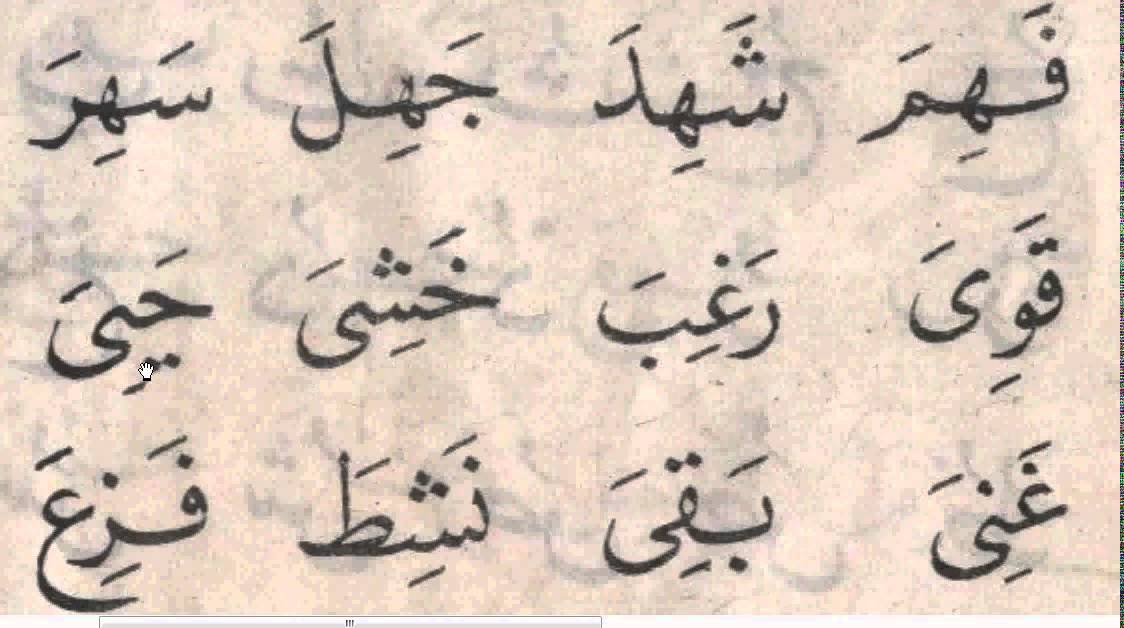 فَهِمَ شَهِدَ جَهِلَ سَهِرَ
قَوِىَ رَغِبَ خَشِىَ حَيِىَ
غَنِىَ بَقِىَ نَشِطَ فَزِعَ